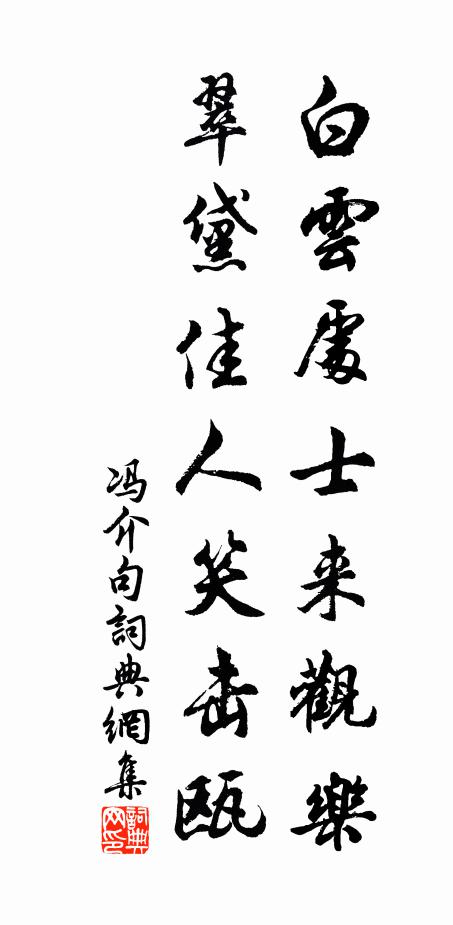 白雲處士来觀樂
翠黛佳人笑击瓯
冯介句詞典網集
詞典网印